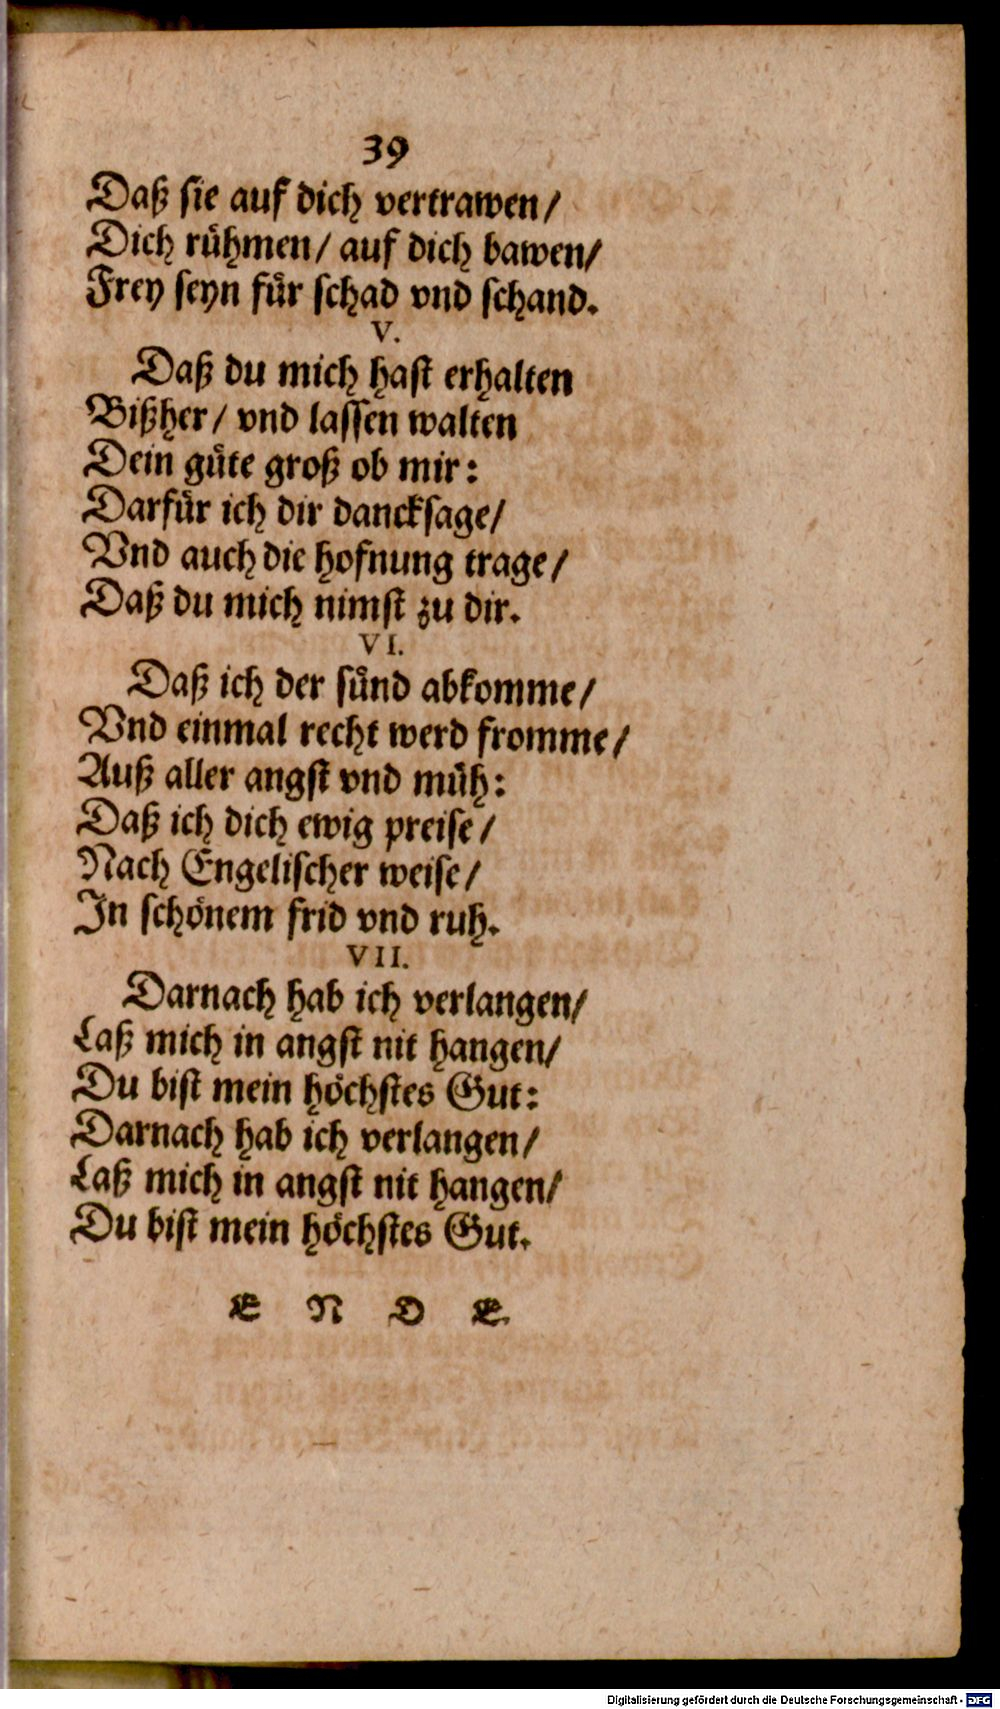 39
Daß sie auf dich vertrawen/
Dich rühmen/ auf dich bawen/
Frey seyn für schad vnd schand.
V.
Daß du mich hast erhalten
Bißher/ vnd lassen walten
Dein güte groß ob mir:
Darfür ich dir dancksage/
Vnd auch die hofnung trage/
Daß du mich nimst zu dir.
VI.
Daß ich der sünd abkomme/
Vnd einmal recht werd fromme/
Auß aller angst vnd müh:
Daß ich dich ewig preise/
Nach Engelischer weise/
In schönem frid vnd ruh.
VII.
Darnach hab ich verlangen/
Laß mich in angst nit hangen/
Du bist mein höchstes Gut:
Darnach hab ich verlangen/
Laß mich in angst nit hangen/
Du bist mein höchstes Gut.
E N D E.
Digitalisierung gefördert durch die Deutsche Forschungsgemeinschaft - DFG